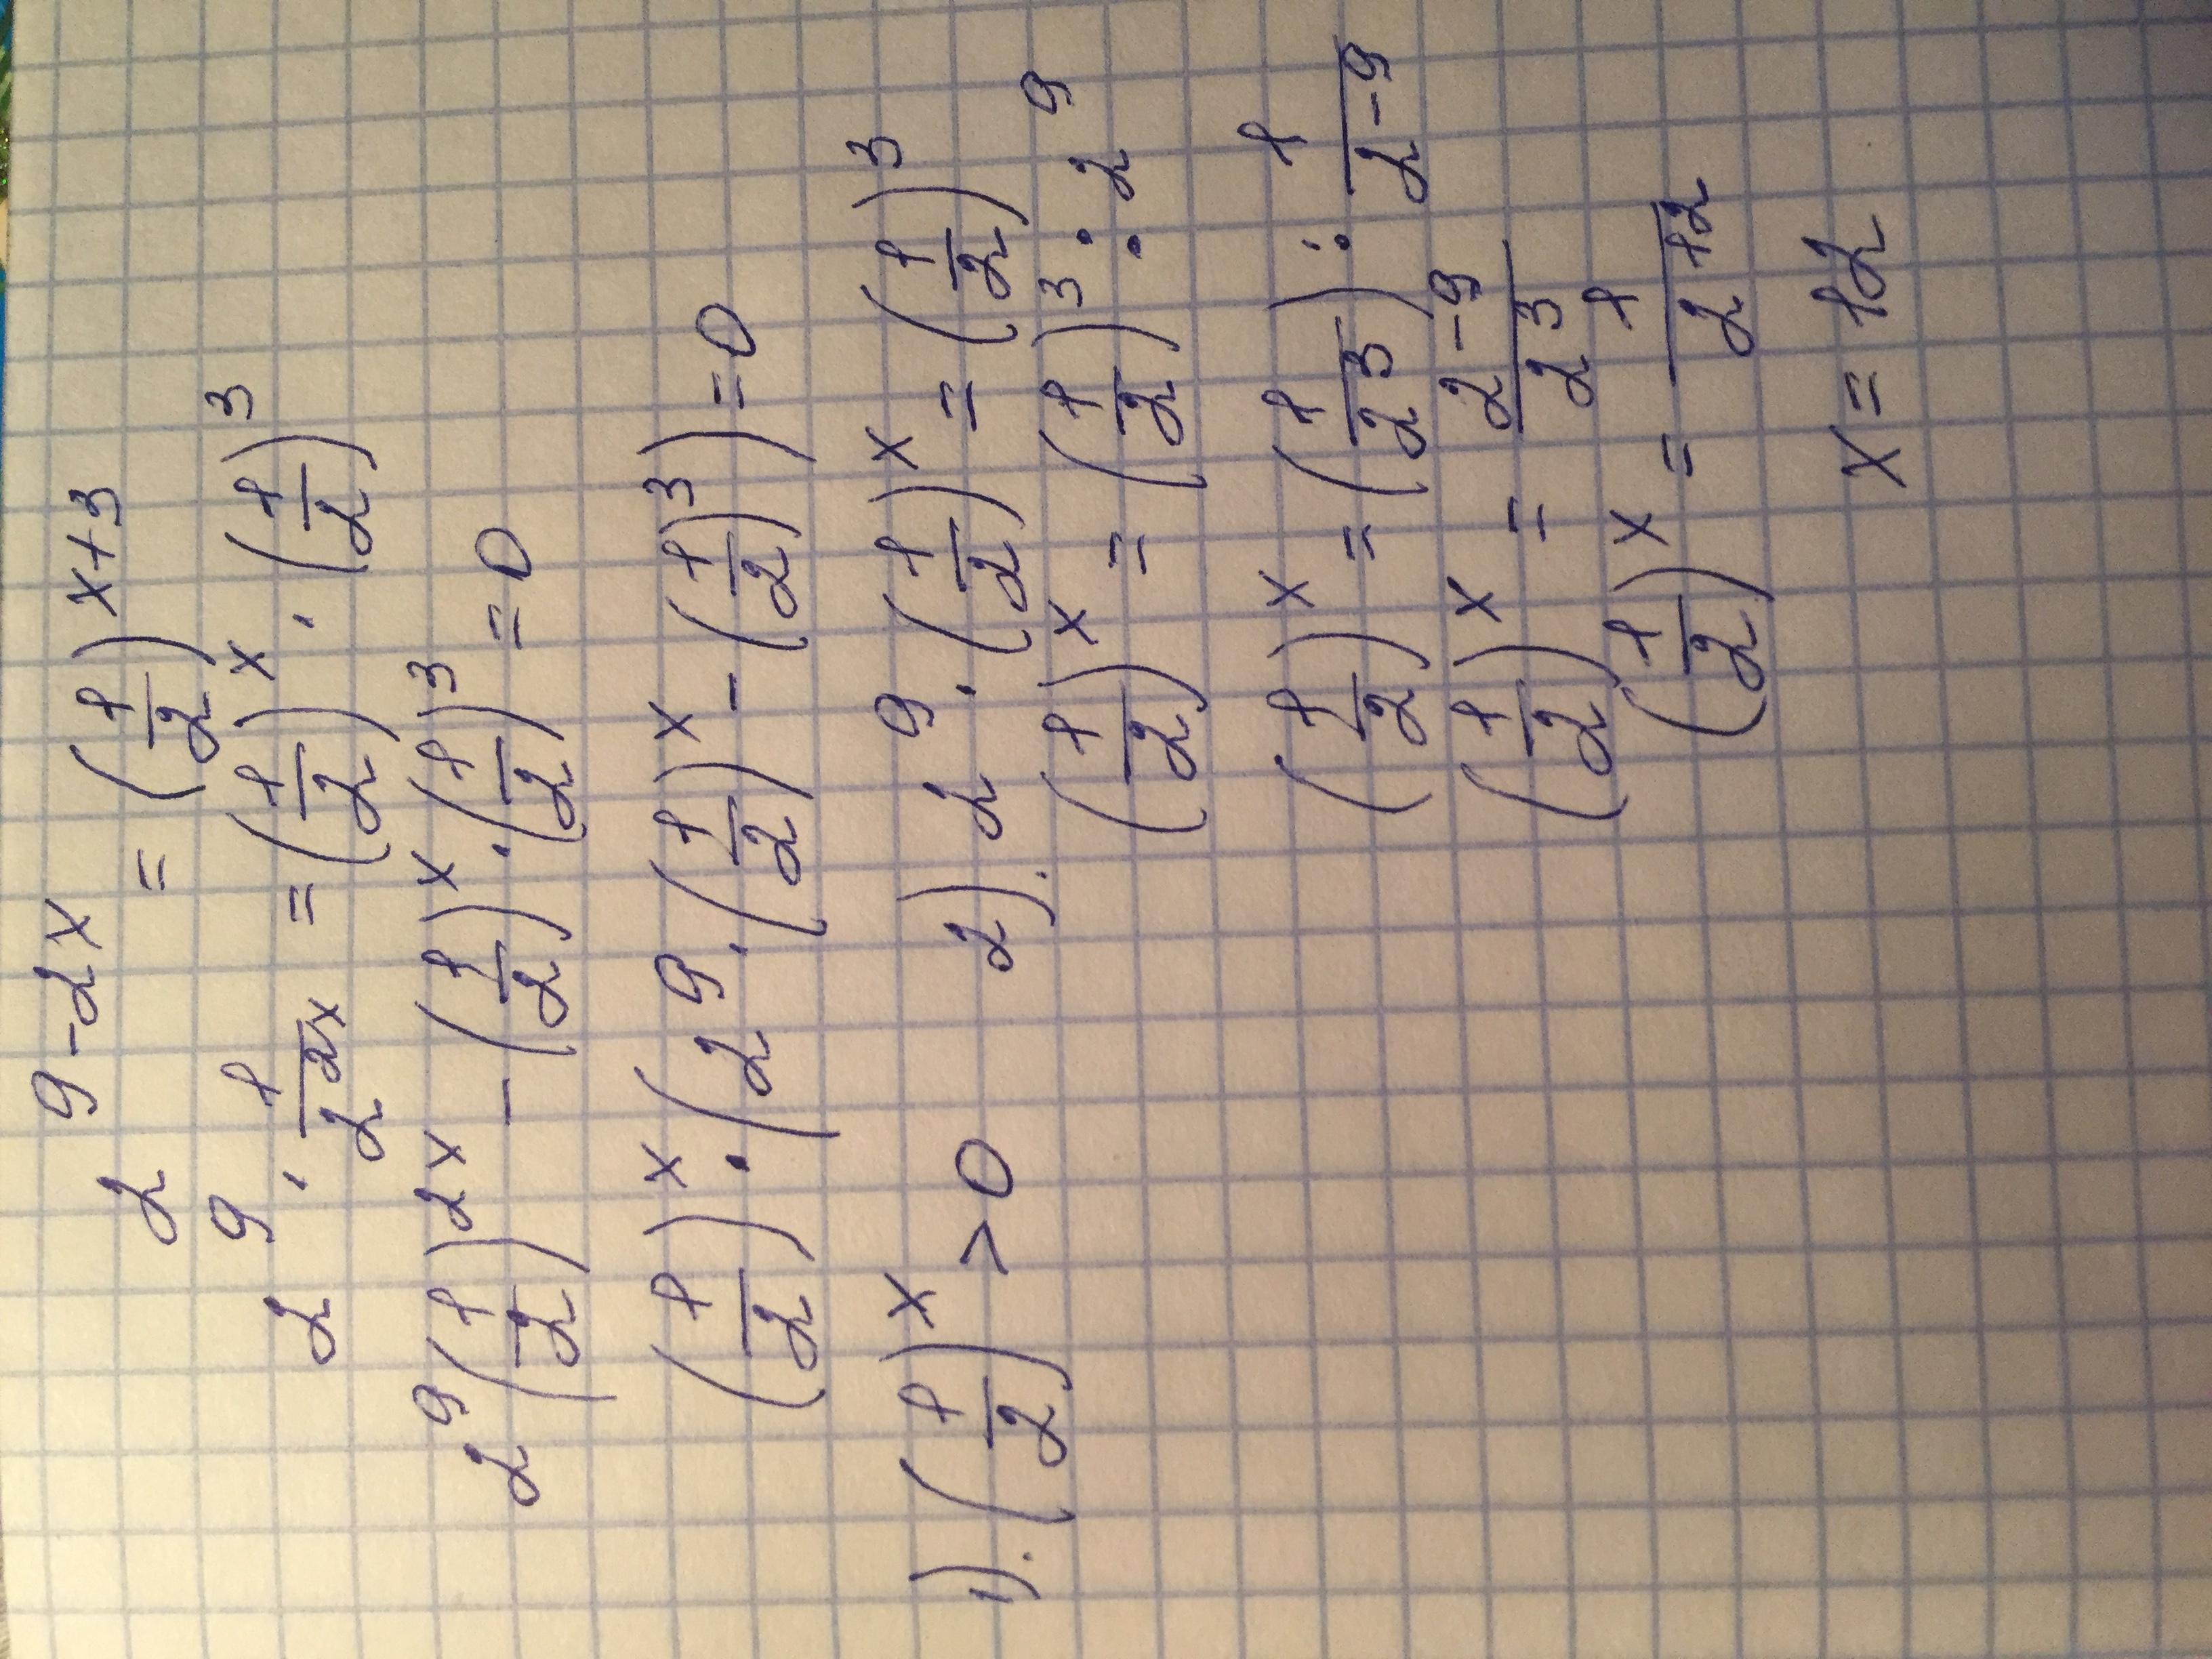 2^(9-2x) = (1/2)^(x+3)
2^9 · 1/2^(2x) = (1/2)^x · (1/2)^3
2^9 (1/2)^(2x) - (1/2)^x · (1/2)^3 = 0
(1/2)^x · (2^9 · (1/2)^x - (1/2)^3) = 0
1). (1/2)^x > 0
2). 2^9 · (1/2)^x = (1/2)^3
(1/2)^x = (1/2)^3 : 2^9
(1/2)^x = (1/2^3) : 1/2^(-9)
(1/2)^x = 2^(-9)/2^3
(1/2)^x = 1/2^12
x = 12